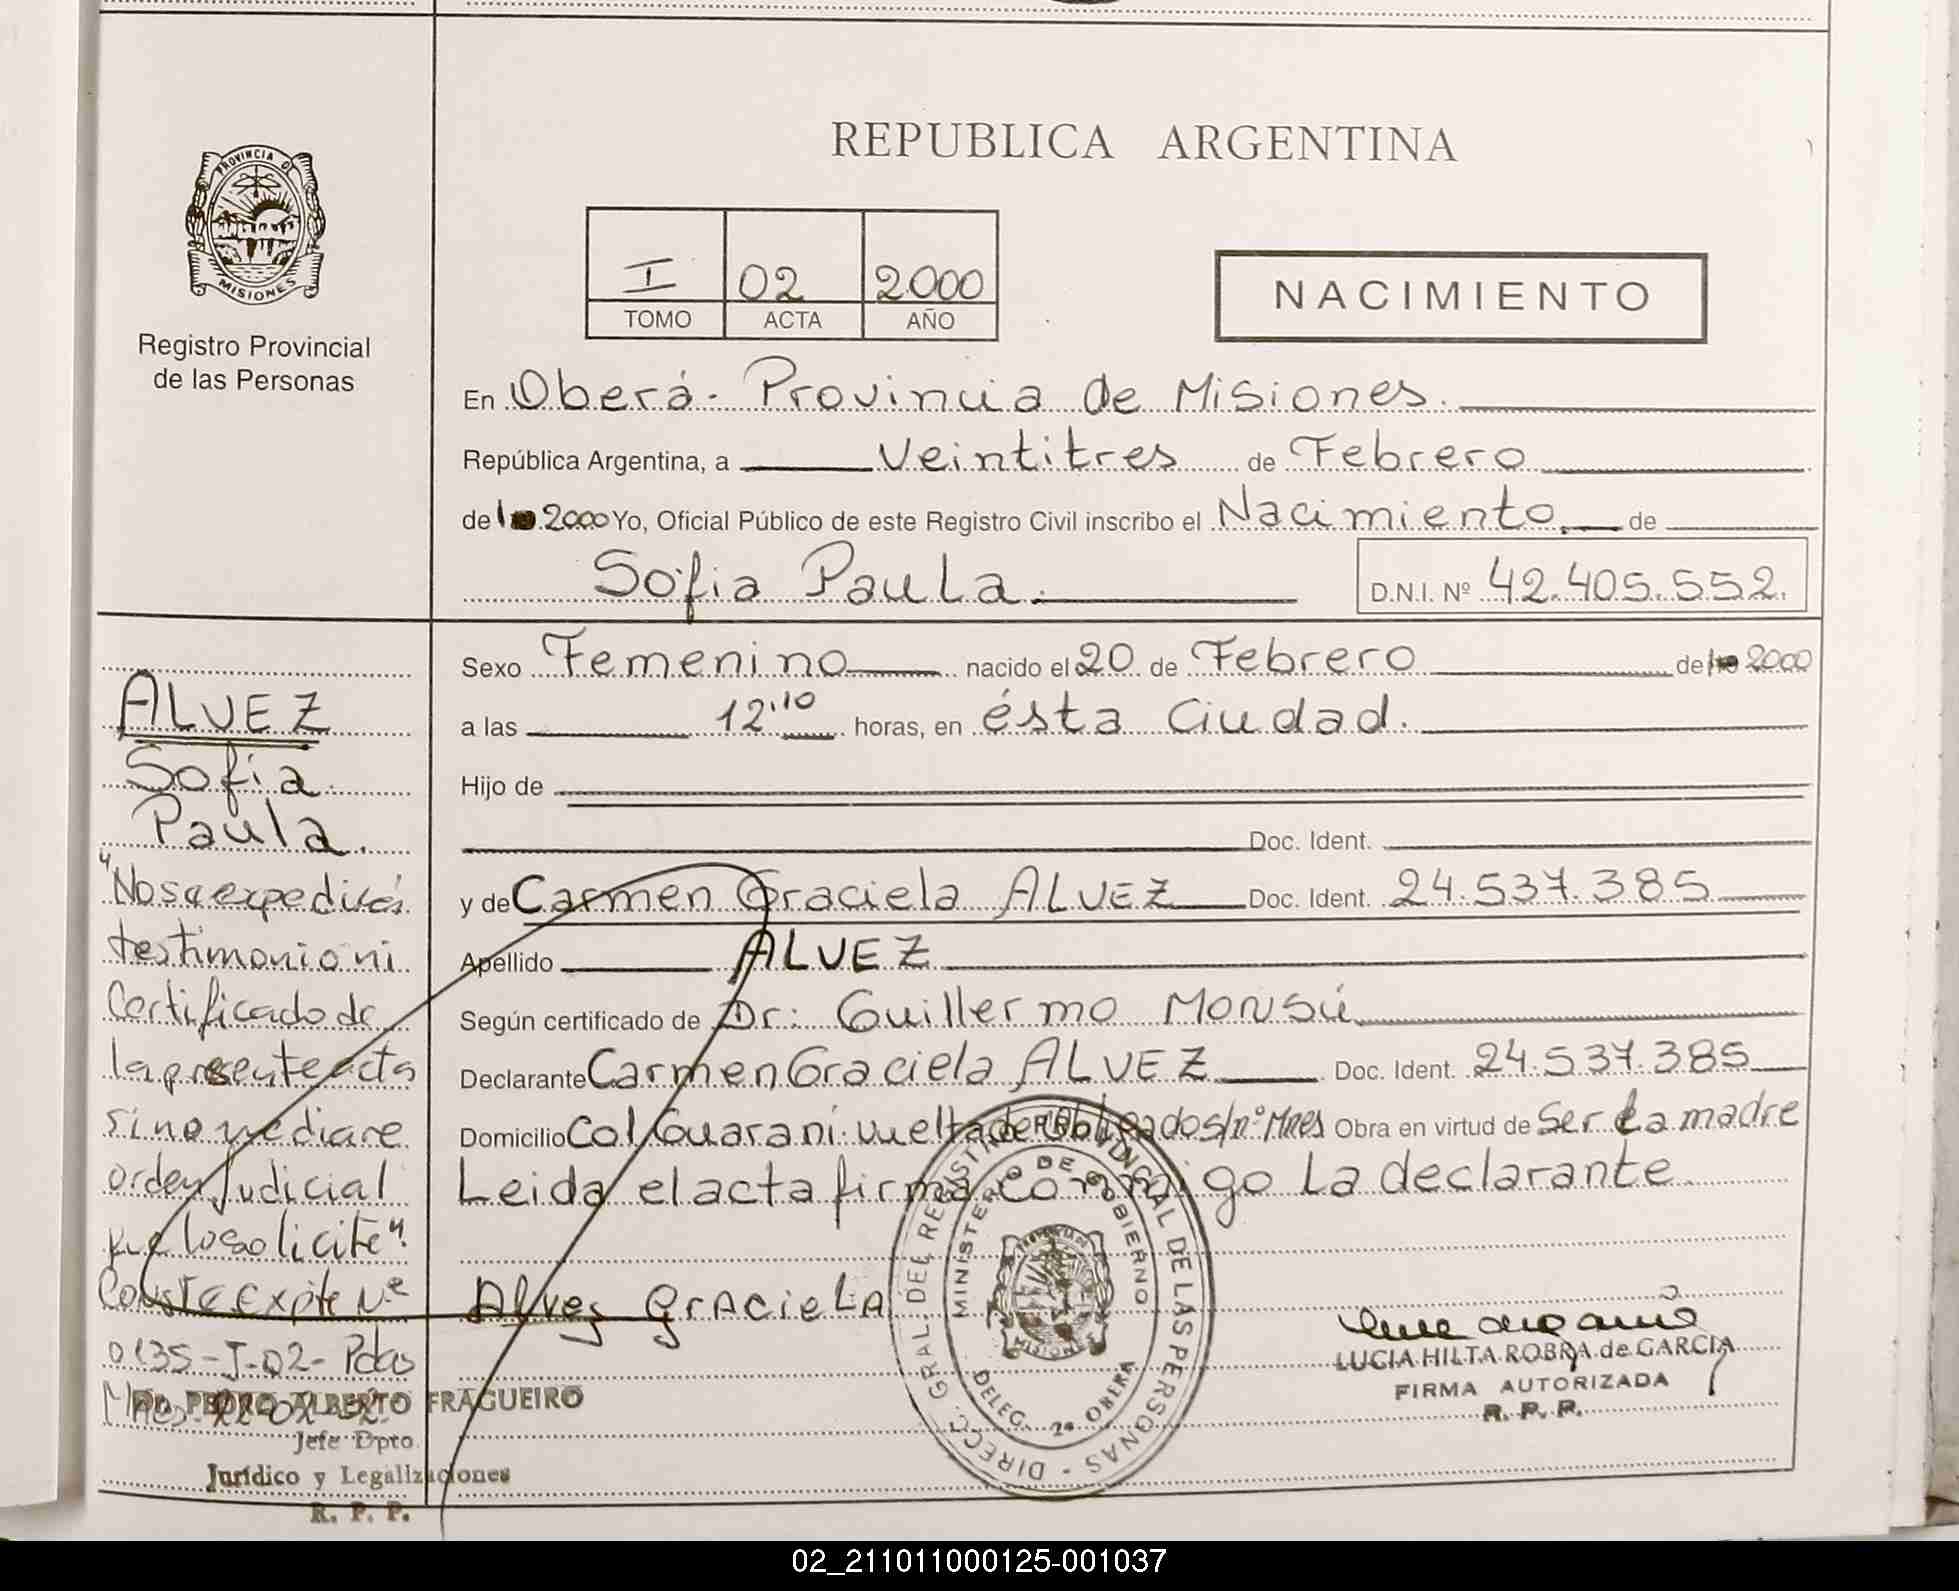 REPUBLICA ARGENTINA
PROVINCIA DE
MISIONES
Registro Provincial
de las Personas
I 02 2000
TOMO ACTA AÑO
NACIMIENTO
En Oberá - Provincia de Misiones.
República Argentina, a Veintitres de Febrero
de 2000 Yo, Oficial Público de este Registro Civil inscribo el Nacimiento, de
Sofia Paula. D.N.I. Nº 42.405.552.
Sexo Femenino nacido el 20 de Febrero de 2000
a las 12,10 horas, en ésta Ciudad.
Hijo de
Doc. Ident.
y de Carmen Graciela ALVEZ Doc. Ident. 24.537.385
Apellido ALVEZ
Según certificado de Dr: Guillermo MONSÚ
Declarante Carmen Graciela ALVEZ Doc. Ident. 24.537.385
Domicilio Col Guarani vuelta de Obligados/nº Mnes Obra en virtud de Ser La madre
Leida el acta firma conmigo La declarante
ALVEZ
Sofía
Paula.
"No se expedirá
testimonio ni
Certificado de
la presente acta
si no mediare
orden Judicial
que lo solicite".
Conste Expte Nº
0135-J-02- Pdas
Mnes
Dr. PEDRO ALBERTO FRAGUEIRO
Jefe Dpto.
Jurídico y Legalizaciones
R. P. P.
Alvez GRACIELA
DIRECC. GRAL. DEL REGISTRO PROVINCIAL DE LAS PERSONAS -
MINISTERIO DE GOBIERNO
MISIONES
DELEG. 2ª OBERA
LUCIA HILTA ROBRA de GARCIA
FIRMA AUTORIZADA
R. P. P.
02_211011000125-001037